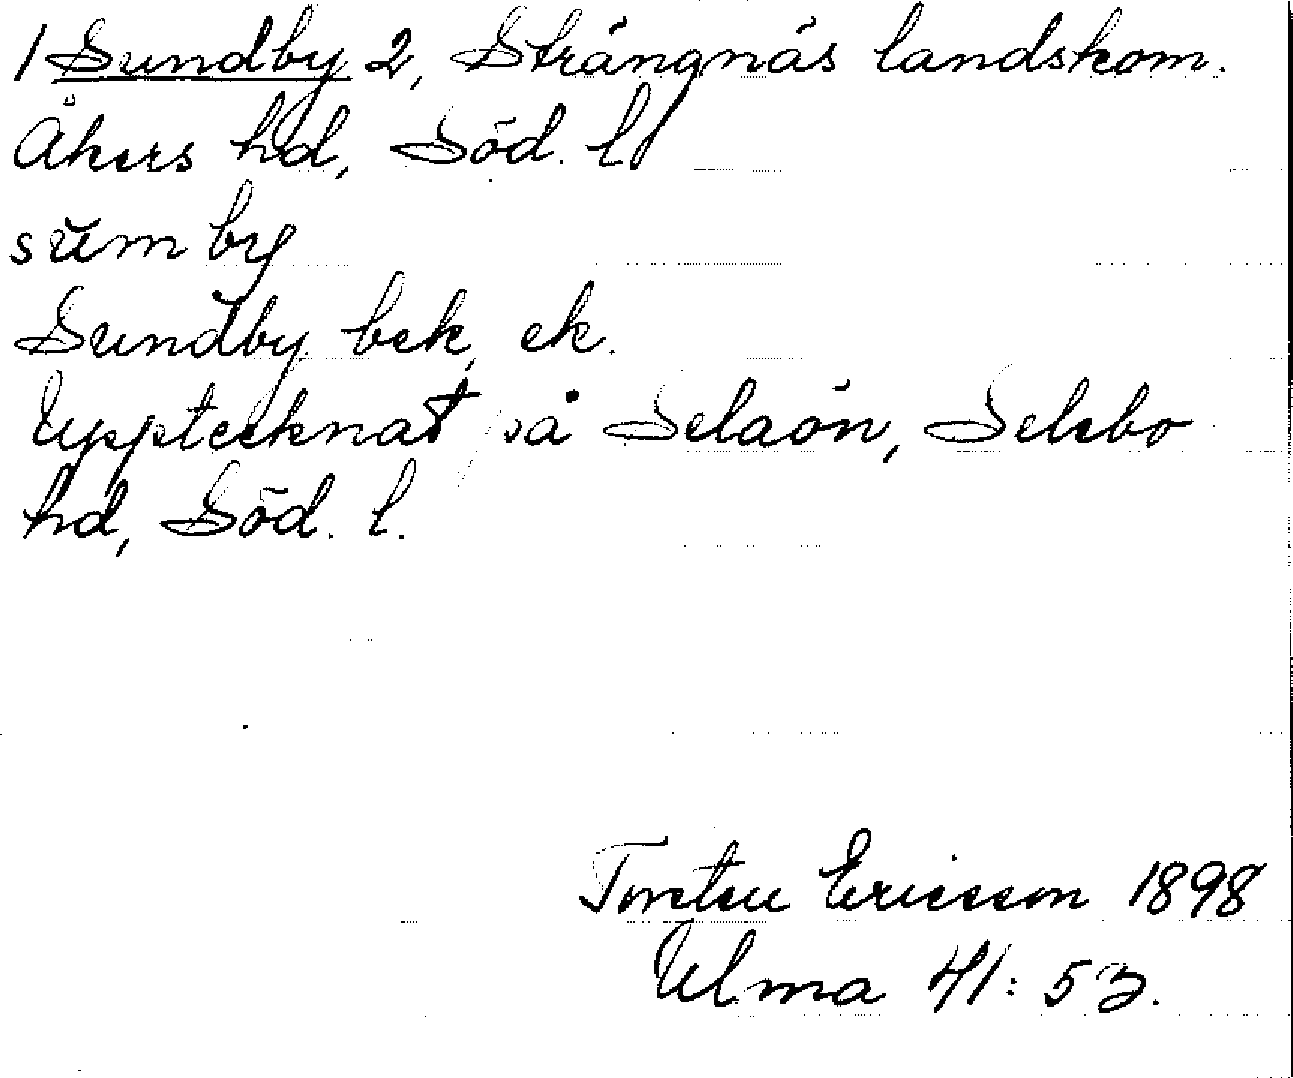 1 Sundby 2, Strängnäs landskom.
Åkers hd, Söd. l
sŭm by
Sundby bek, ek.
Upptecknat på Selaön, Selebo
hd, Söd. l.
Torsten Ericsson 1898
Ulma 41: 53.